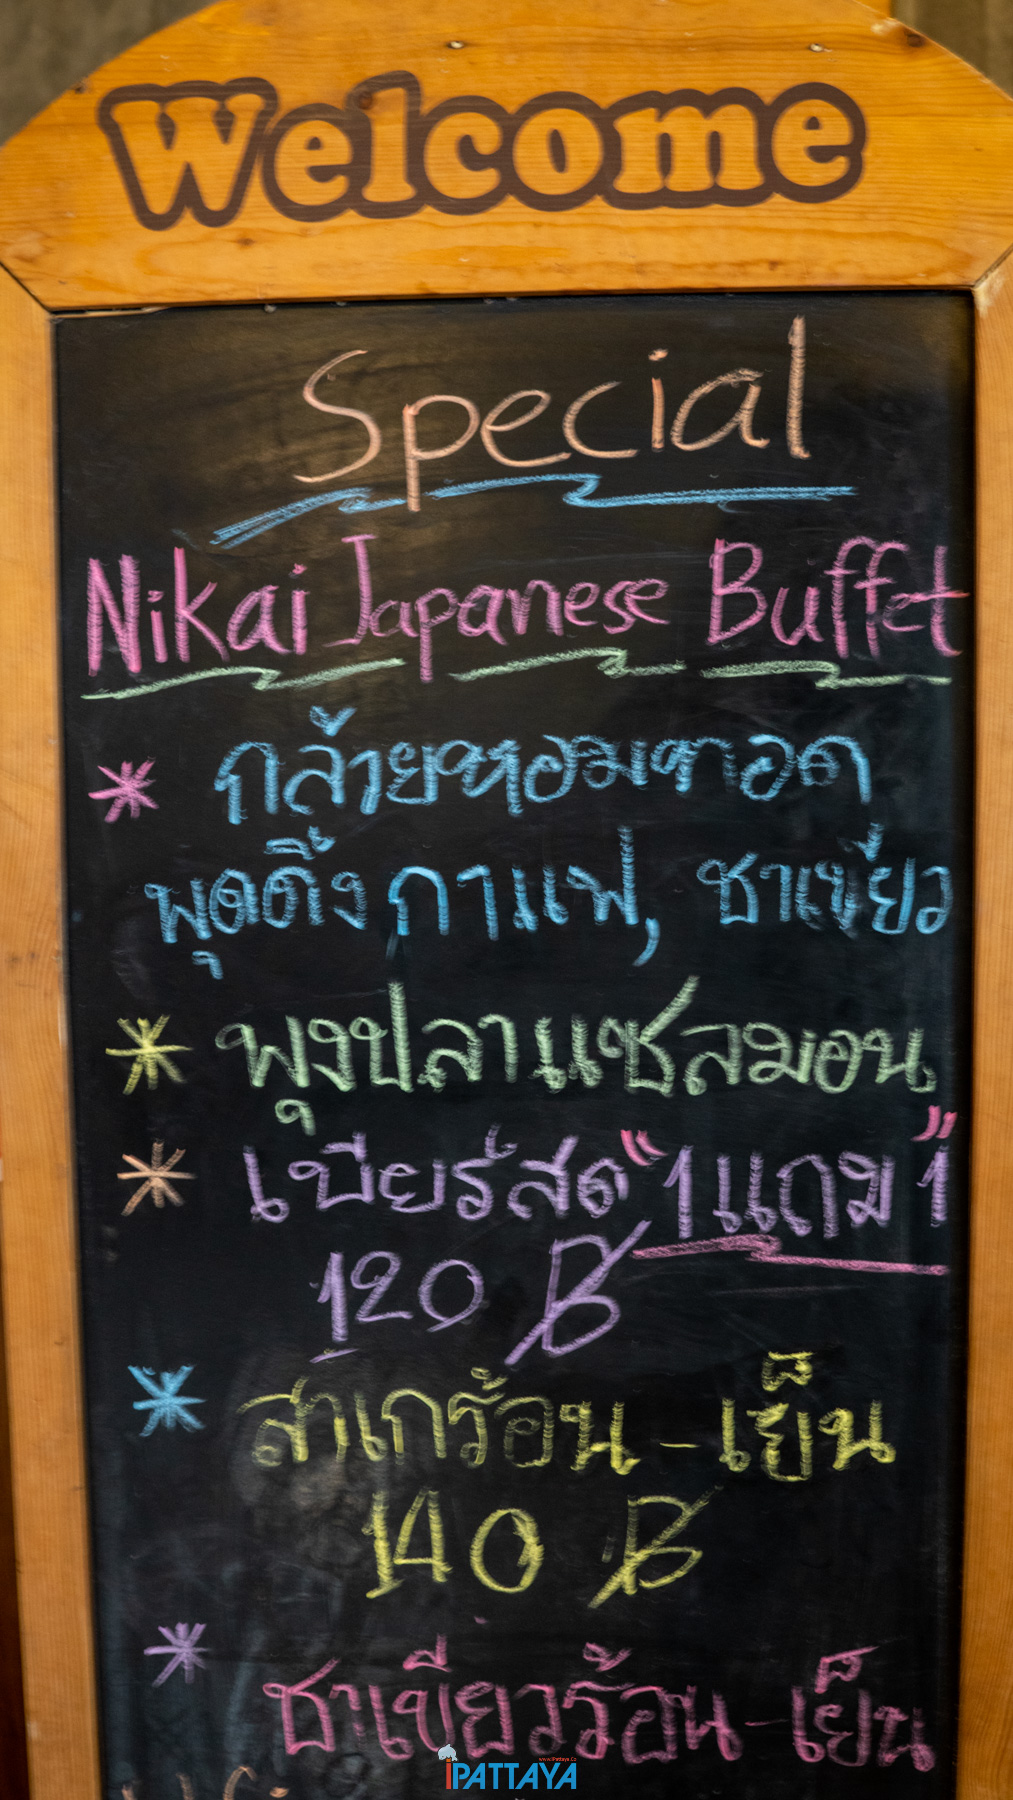 Welcome
Special
Nikai Japanese Buffet
* กล้วยหอมทอด
พุดดิ้ง กาแฟ, ชาเขียว
* พุงปลาแซลมอน
* เบียร์สด "1 แถม 1"
120 ฿
* สาเกร้อน - เย็น
140 ฿
* ชาเขียวร้อน - เย็น
www.iPattaya.Co
iPATTAYA